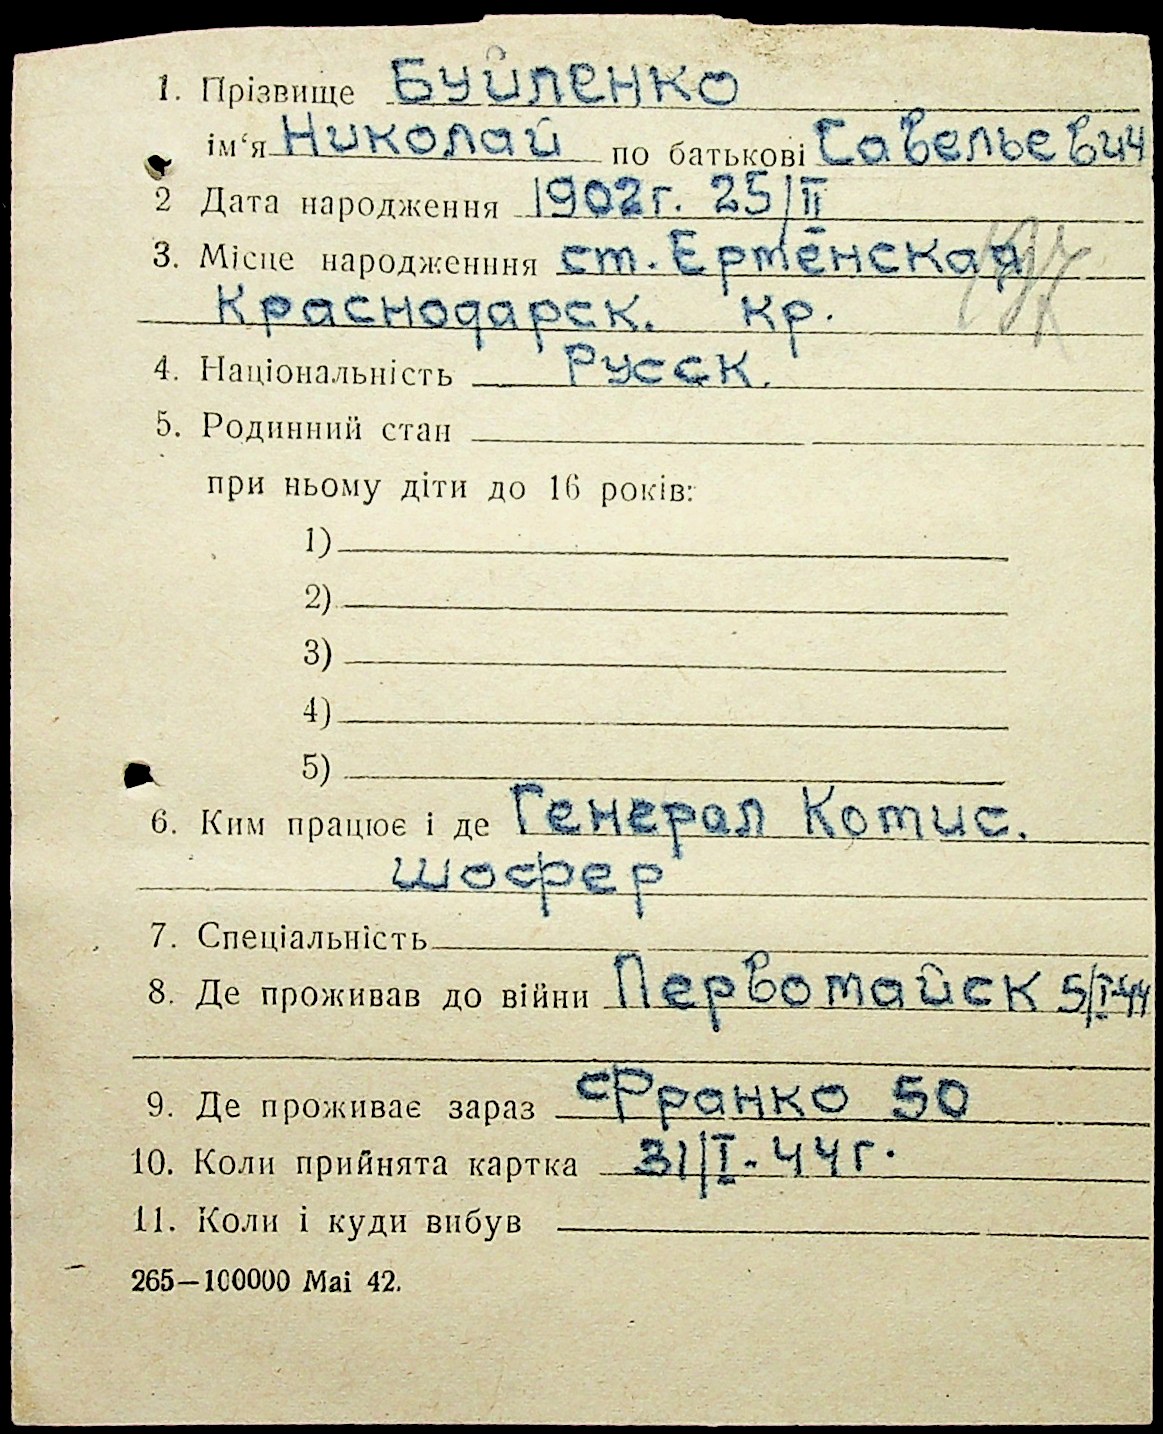 1. Прізвище Буйленко
ім‘я Николай по батькові Савельевич
2 Дата народження 1902г. 25/II
3. Місце народженння ст. Ертенская
Краснодарск. кр.
4. Національність Русск.
5. Родинний стан
при ньому діти до 16 років:
1)
2)
3)
4)
5)
6. Ким працює і де Генерал Комис.
шофер
7. Спеціальність
8. Де проживав до війни Первомайск 5/I-44
9. Де проживає зараз Франко 50
10. Коли прийнята картка 31/I-44г.
11. Коли і куди вибув
265—100000 Mai 42.